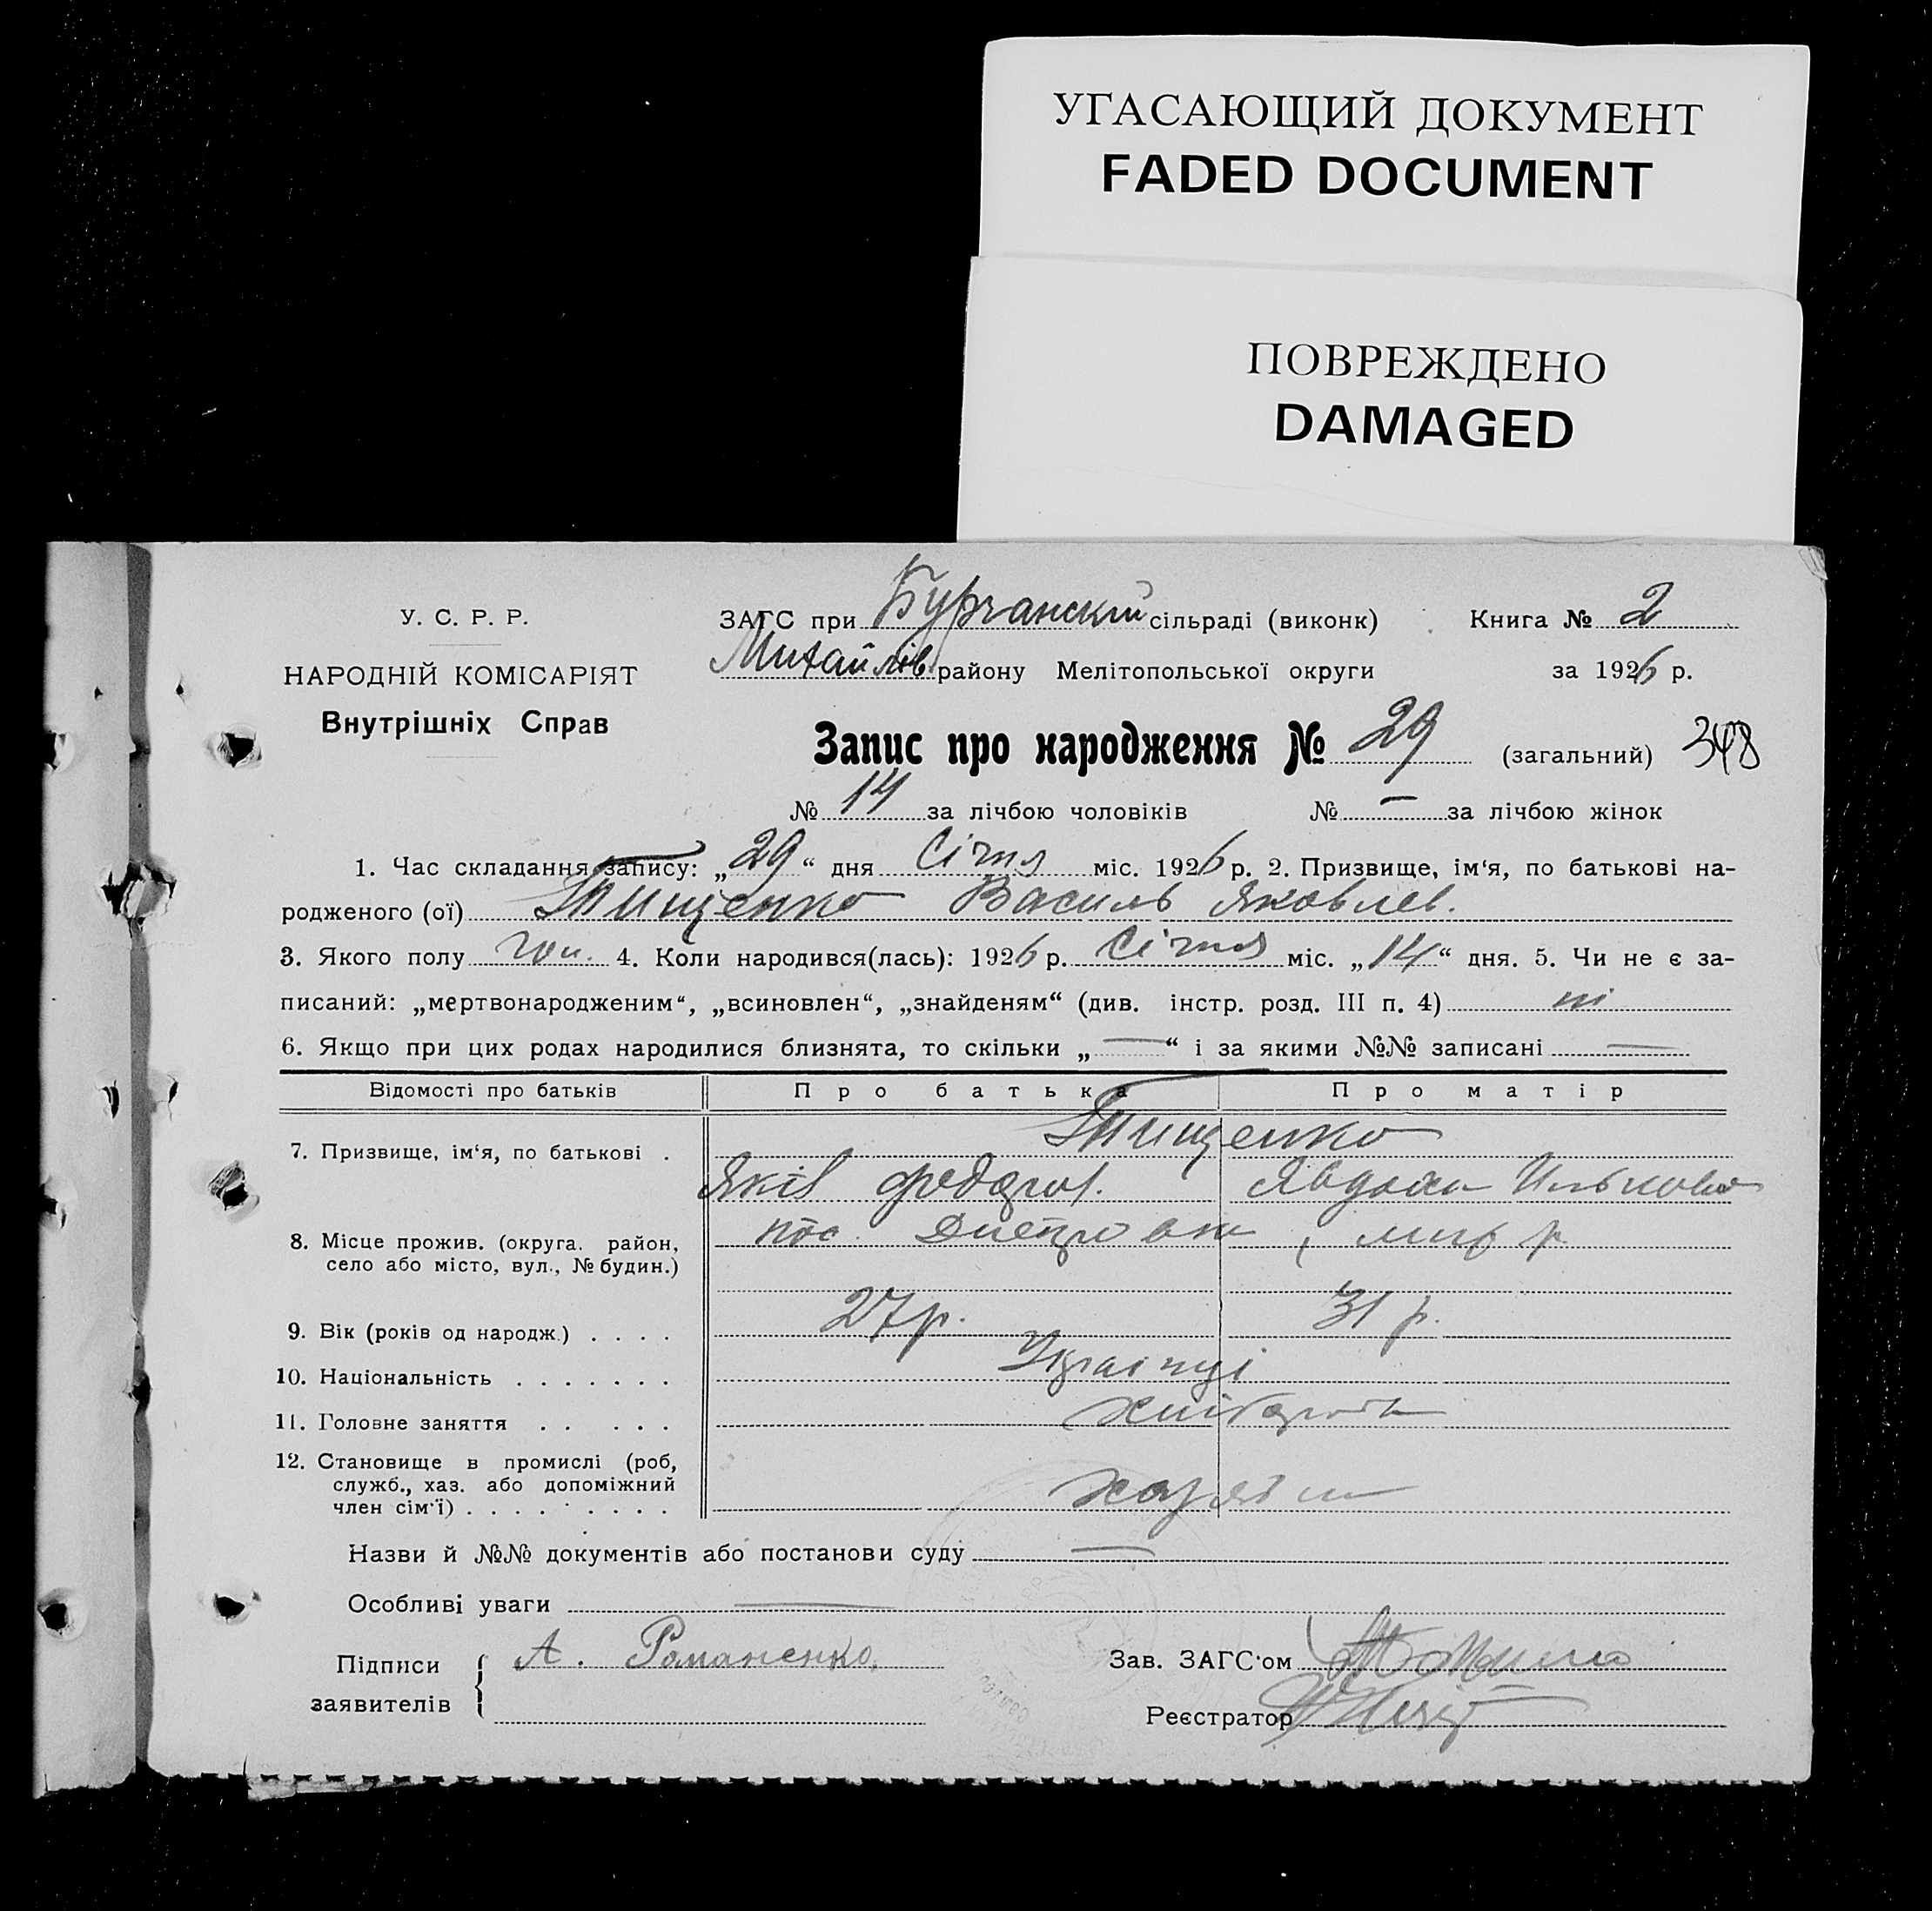 УГАСАЮЩИЙ ДОКУМЕНТ
FADED DOCUMENT
ПОВРЕЖДЕНО
DAMAGED
У. С. Р. Р.
НАРОДНІЙ КОМІСАРІЯТ
Внутрішніх Справ
ЗАГС при Бурчанскій сільраді (виконк) Книга № 2
Михайлів. району Мелітопольської округи за 1926 р.
Запис про народження № 29 (загальний) 348
№ 14 за лічбою чоловіків № — за лічбою жінок
1. Час складання запису: „29“ дня Січня міс. 1926 р. 2. Призвище, ім‘я, по батькові на-
родженого (ої) Тищенко Василь Яковлев.
3. Якого полу чол. 4. Коли народився(лась): 1926 р. Січня міс. „14“ дня. 5. Чи не є за-
писаний: „мертвонародженим“, „всиновлен“, „знайденям“ (див. інстр. розд. III п. 4) ні
6. Якщо при цих родах народилися близнята, то скільки „—“ і за якими №№ записані —
Відомості про батьків Про батька Про матір
Тищенко
7. Призвище, ім‘я, по батькові .
Яків Федоров. Явдоха Илькова
8. Місце прожив. (округа. район, пос. Днепровка, мих р
село або місто, вул., № будин.)
9. Вік (років од народж.) . . . . 27 р. 31 р.
10. Національність . . . . . . . Українці
11. Головне заняття . . . . . хлібороби
12. Становище в промислі (роб,
служб., хаз. або допоміжний
член сім‘ї) . . . . . . . . .
Назви й №№ документів або постанови суду —
Особливі уваги —
Підписи А. Романенко.
заявителів
Зав. ЗАГС‘ом
Реєстратор